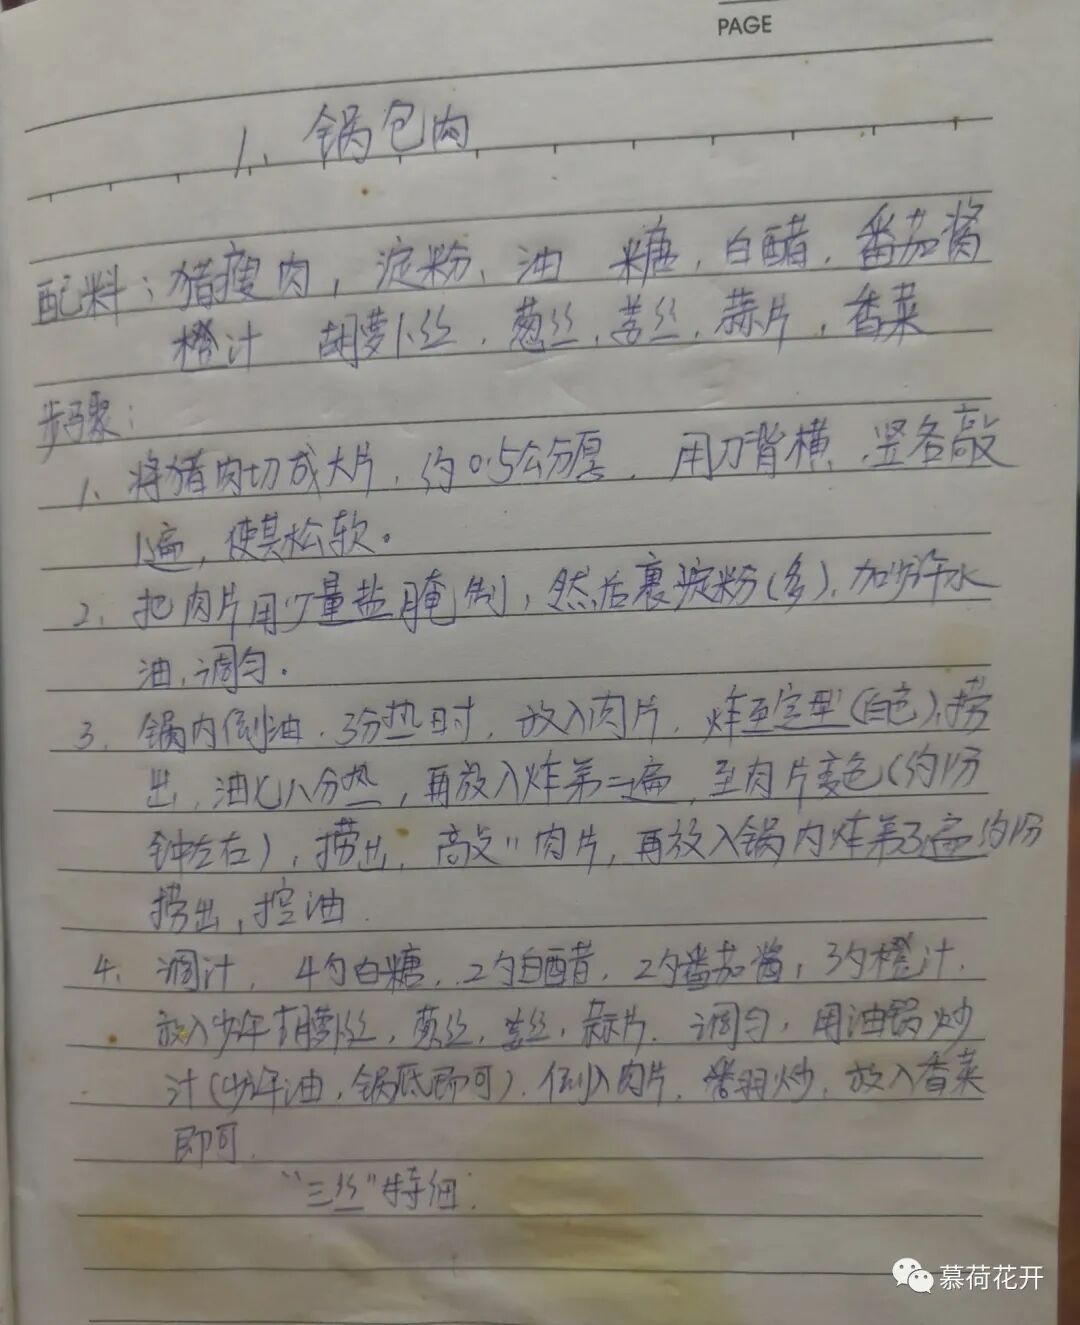 PAGE
1、锅包肉
配料：猪瘦肉，淀粉、油 糖，白醋，番茄酱
橙汁 胡萝卜丝，葱丝，姜丝，蒜片，香菜
步骤：
1、将猪肉切成大片，约0.5公分厚，用刀背横、竖各敲
1遍，使其松软。
2、把肉片用少量盐腌制，然后裹淀粉(多)，加少许水
油，调匀。
3、锅内倒油，3分热时，放入肉片，炸至定型(白色)，捞
出，油七八分热，再放入炸第二遍，至肉片变色(约1分
钟左右)，捞出，敲"肉片，再放入锅内炸第3遍约1分
捞出，控油
4、调汁，4勺白糖，2勺白醋，2勺番茄酱，3勺橙汁，
放入少许胡萝卜丝，葱丝，姜丝，蒜片，调匀，用油锅炒
汁(少许油，锅底即可)，倒入肉片，翻炒，放入香菜
即可.
"三丝"特细.
慕荷花开